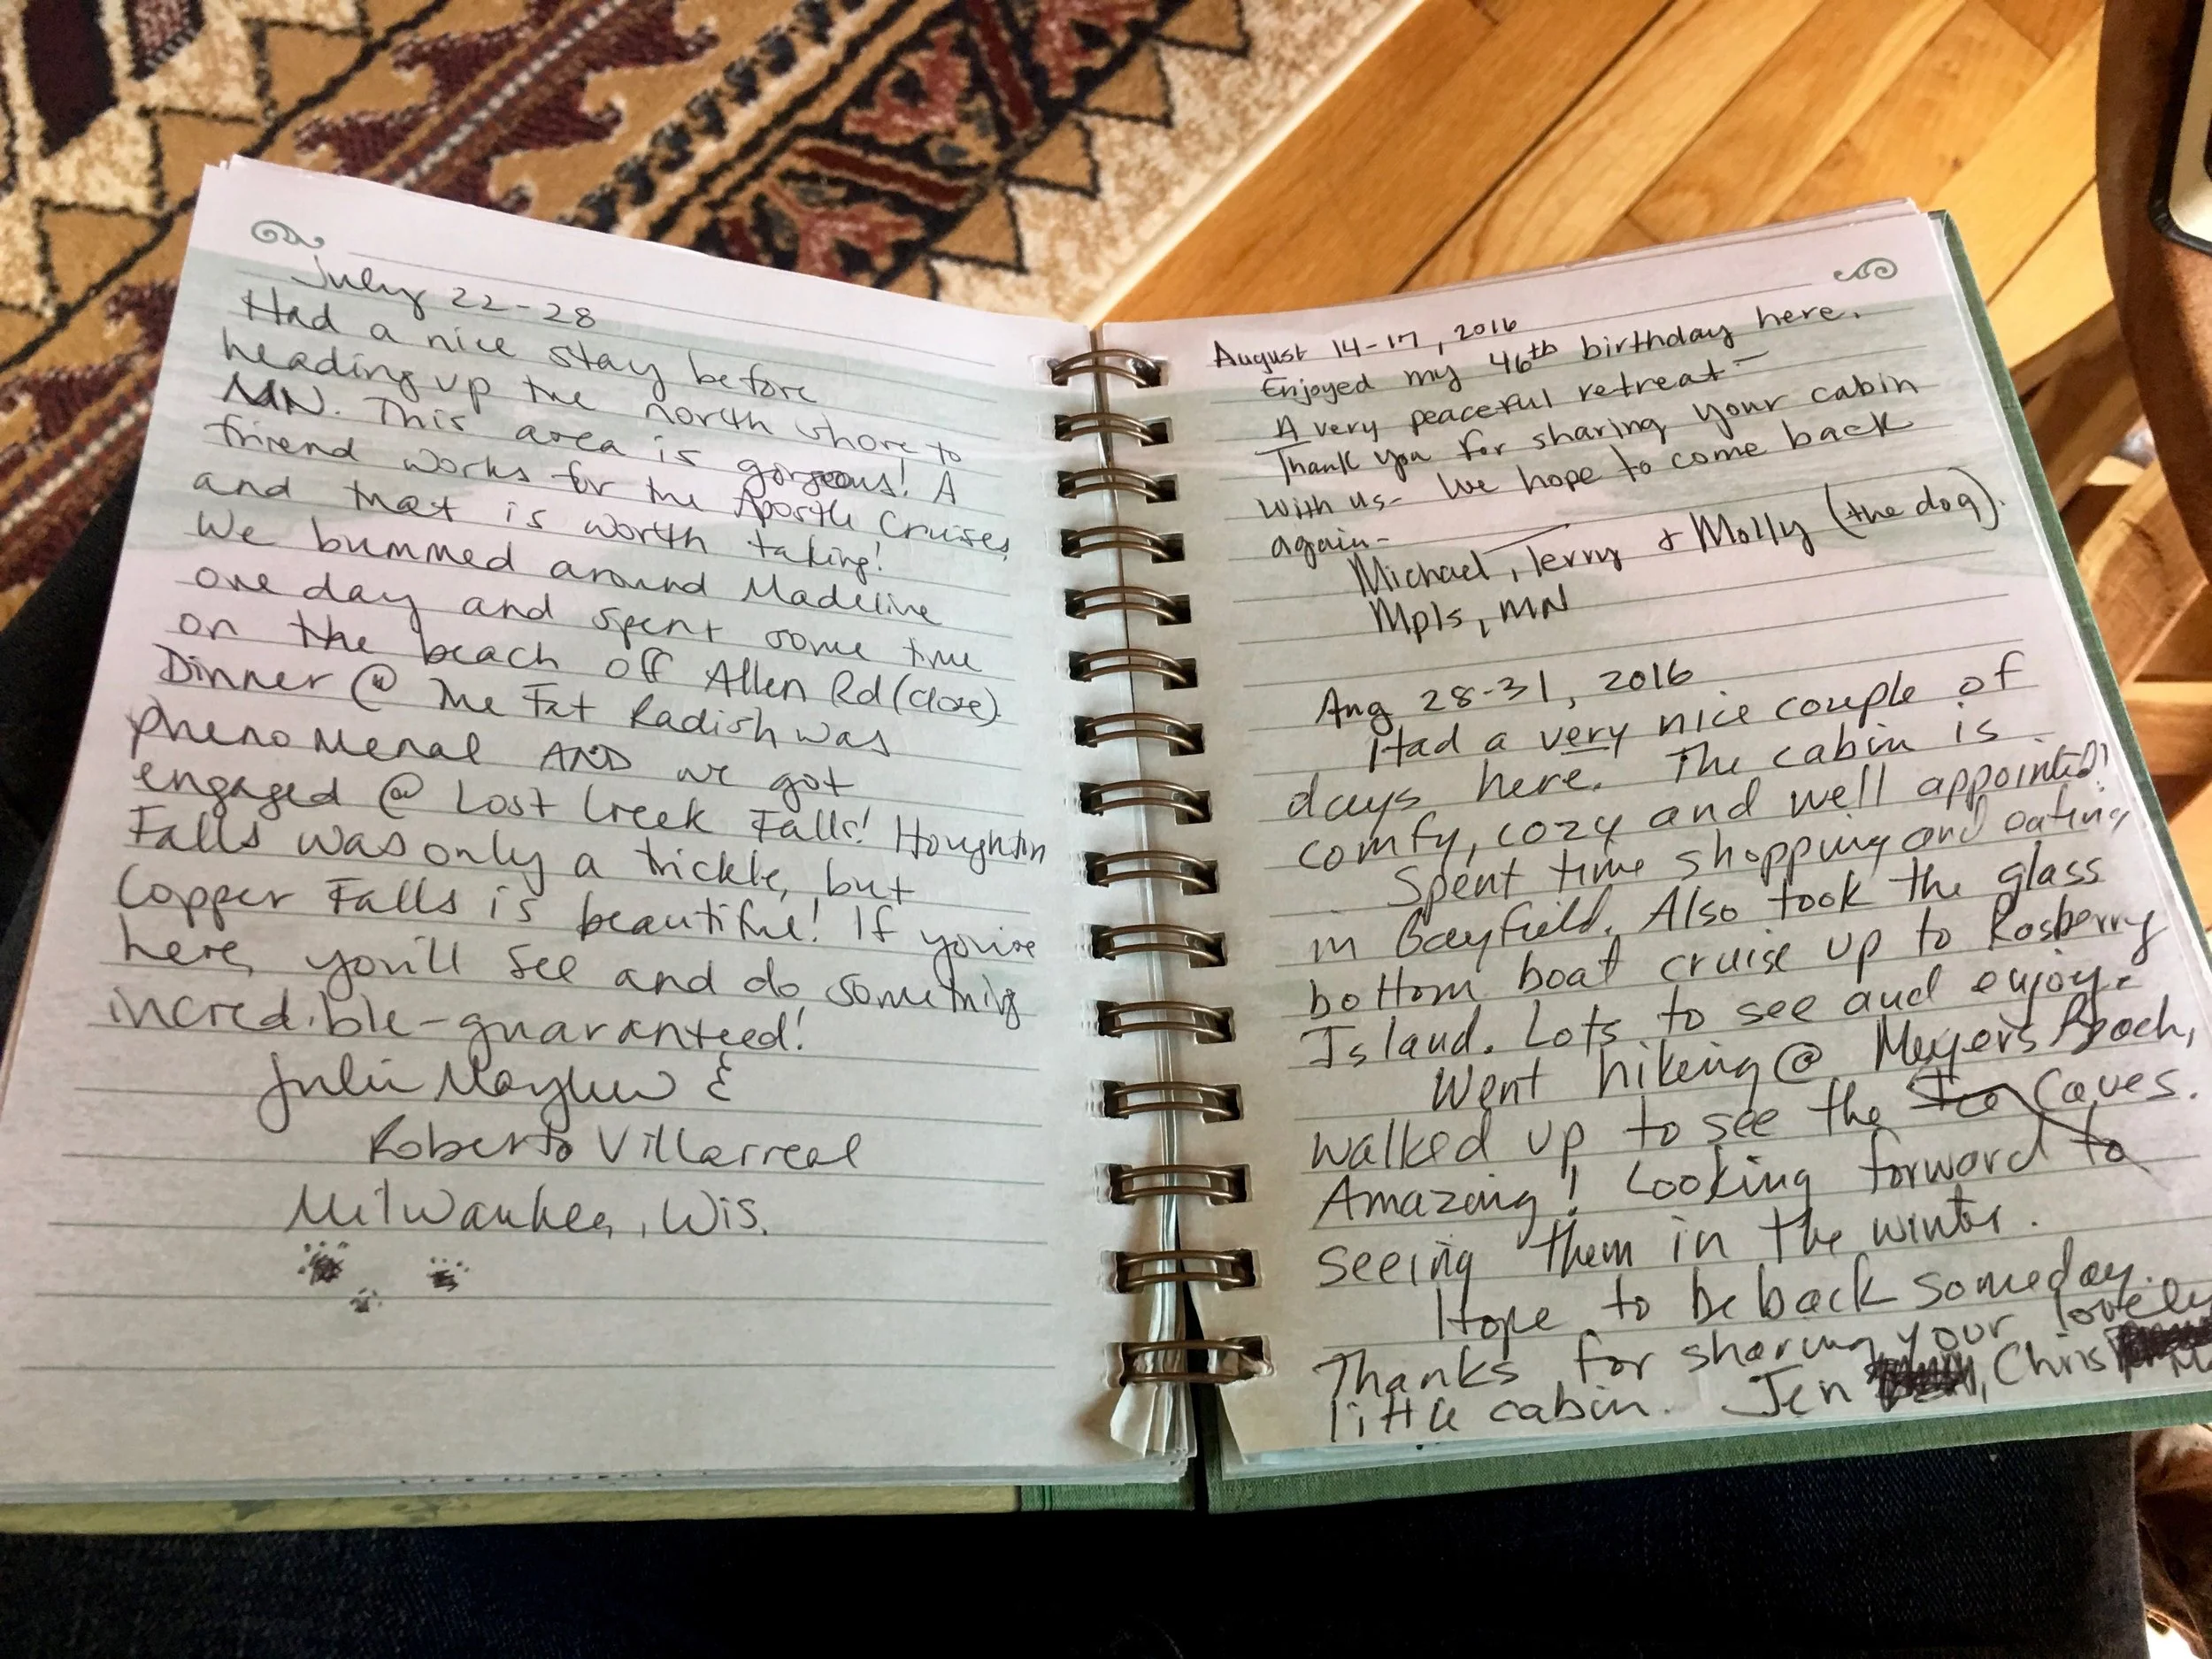 July 22-28
Had a nice stay before
heading up the north shore to
MN. This area is gorgeous! A
friend works for the Apostle Cruises,
and that is worth taking!
We bummed around Madeline
one day and spent some time
on the beach off Allen Rd (close).
Dinner @ The Fat Radish was
phenomenal AND we got
engaged @ Lost Creek Falls! Houghton
Falls was only a trickle, but
Copper Falls is beautiful! If you're
here, you'll see and do something
incredible-guaranteed!
Julie &
Roberto Villarreal
Milwaukee, Wis.
August 14-17, 2016
Enjoyed my 46th birthday here.
A very peaceful retreat -
Thank you for sharing your cabin
with us- We hope to come back
again-
Michael, Terry & Molly (the dog).
Mpls, MN
Aug 28-31, 2016
Had a very nice couple of
days here. The cabin is
comfy, cozy and well appointed!
Spent time shopping and eating
in Bayfield. Also took the glass
bottom boat cruise up to Rasberry
Island. Lots to see and enjoy.
Went hiking @ Meyers Beach,
walked up to see the Ice Caves.
Amazing! Looking forward to
seeing them in the winter.
Hope to be back someday.
Thanks for sharing your lovely
little cabin. Jen , Chris